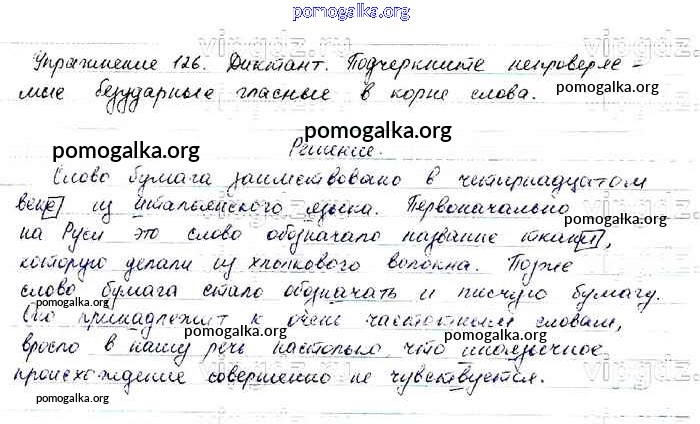 pomogalka.org
Упражнение 126. Диктант. Подчеркните непроверяе-
мые безударные гласные в корне слова.
pomogalka.org
pomogalka.org
pomogalka.org
Решение.
Слово бумага заимствовано в четырнадцатом
веке из итальянского языка. Первоначально
pomogalka.org
pomogalka.org
на Руси это слово обозначало название ткани,
которую делали из хлопкового волокна. Позже
слово бумага стало обозначать и писчую бумагу.
pomogalka.org
Оно принадлежит к очень частотным словам,
pomogalka.org
pomogalka.org
вросло в нашу речь настолько, что иноязычное
происхождение совершенно не чувствуется.
pomogalka.org
pomogalka.org